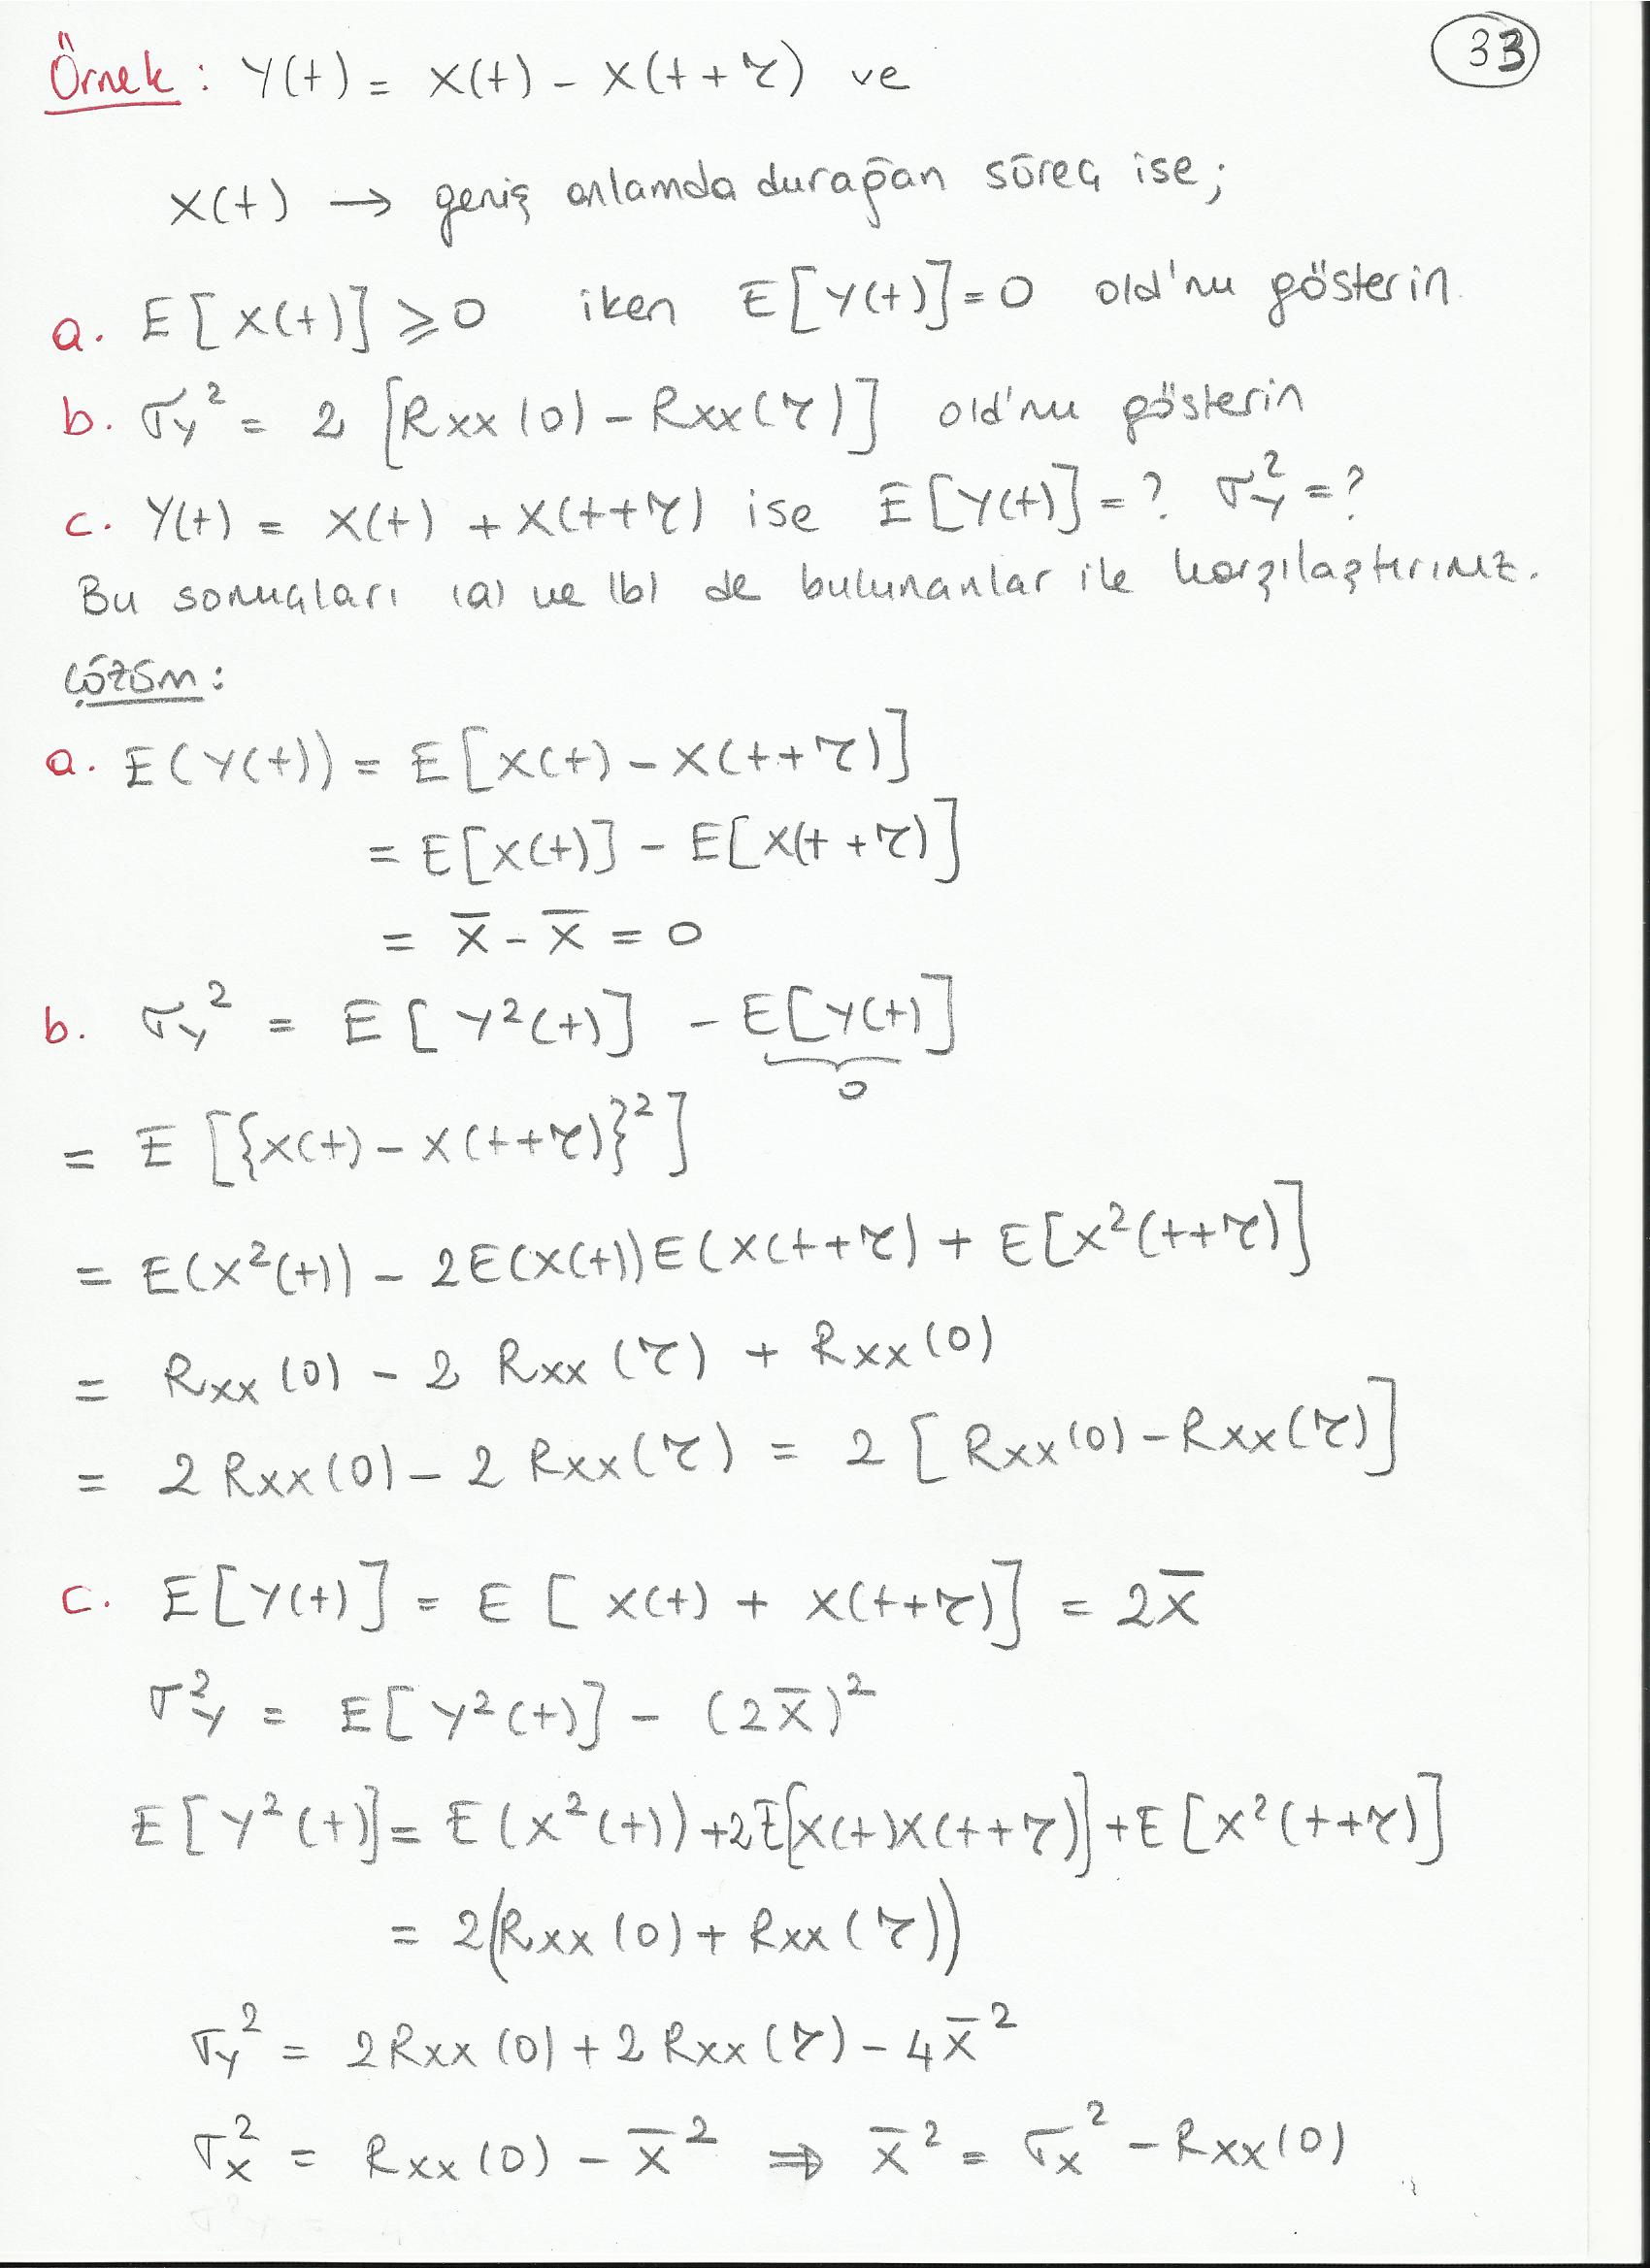 33
Örnek: Y(t) = X(t) - X(t+τ) ve
X(t) → geniş anlamda durağan süreç ise;
a. E[X(t)] ≥ 0 iken E[Y(t)] = 0 old'nu gösterin.
b. σ_Y² = 2 [Rxx(0) - Rxx(τ)] old'nu gösterin
c. Y(t) = X(t) + X(t+τ) ise E[Y(t)] = ? σ_Y² = ?
Bu sonuçları (a) ve (b) de bulunanlar ile karşılaştırınız.
Çözüm:
a. E(Y(t)) = E[X(t) - X(t+τ)]
= E[X(t)] - E[X(t+τ)]
= X̄ - X̄ = 0
b. σ_Y² = E[Y²(t)] - E[Y(t)]
0
= E[{X(t) - X(t+τ)}²]
= E(X²(t)) - 2E(X(t))E(X(t+τ) + E[X²(t+τ)]
= Rxx(0) - 2 Rxx(τ) + Rxx(0)
= 2 Rxx(0) - 2 Rxx(τ) = 2 [Rxx(0) - Rxx(τ)]
c. E[Y(t)] = E[X(t) + X(t+τ)] = 2X̄
σ_Y² = E[Y²(t)] - (2X̄)²
E[Y²(t)] = E(X²(t)) + 2E[X(t)X(t+τ)] + E[X²(t+τ)]
= 2(Rxx(0) + Rxx(τ))
σ_Y² = 2Rxx(0) + 2Rxx(τ) - 4X̄²
σ_X² = Rxx(0) - X̄² ⇒ X̄² = σ_X² - Rxx(0)